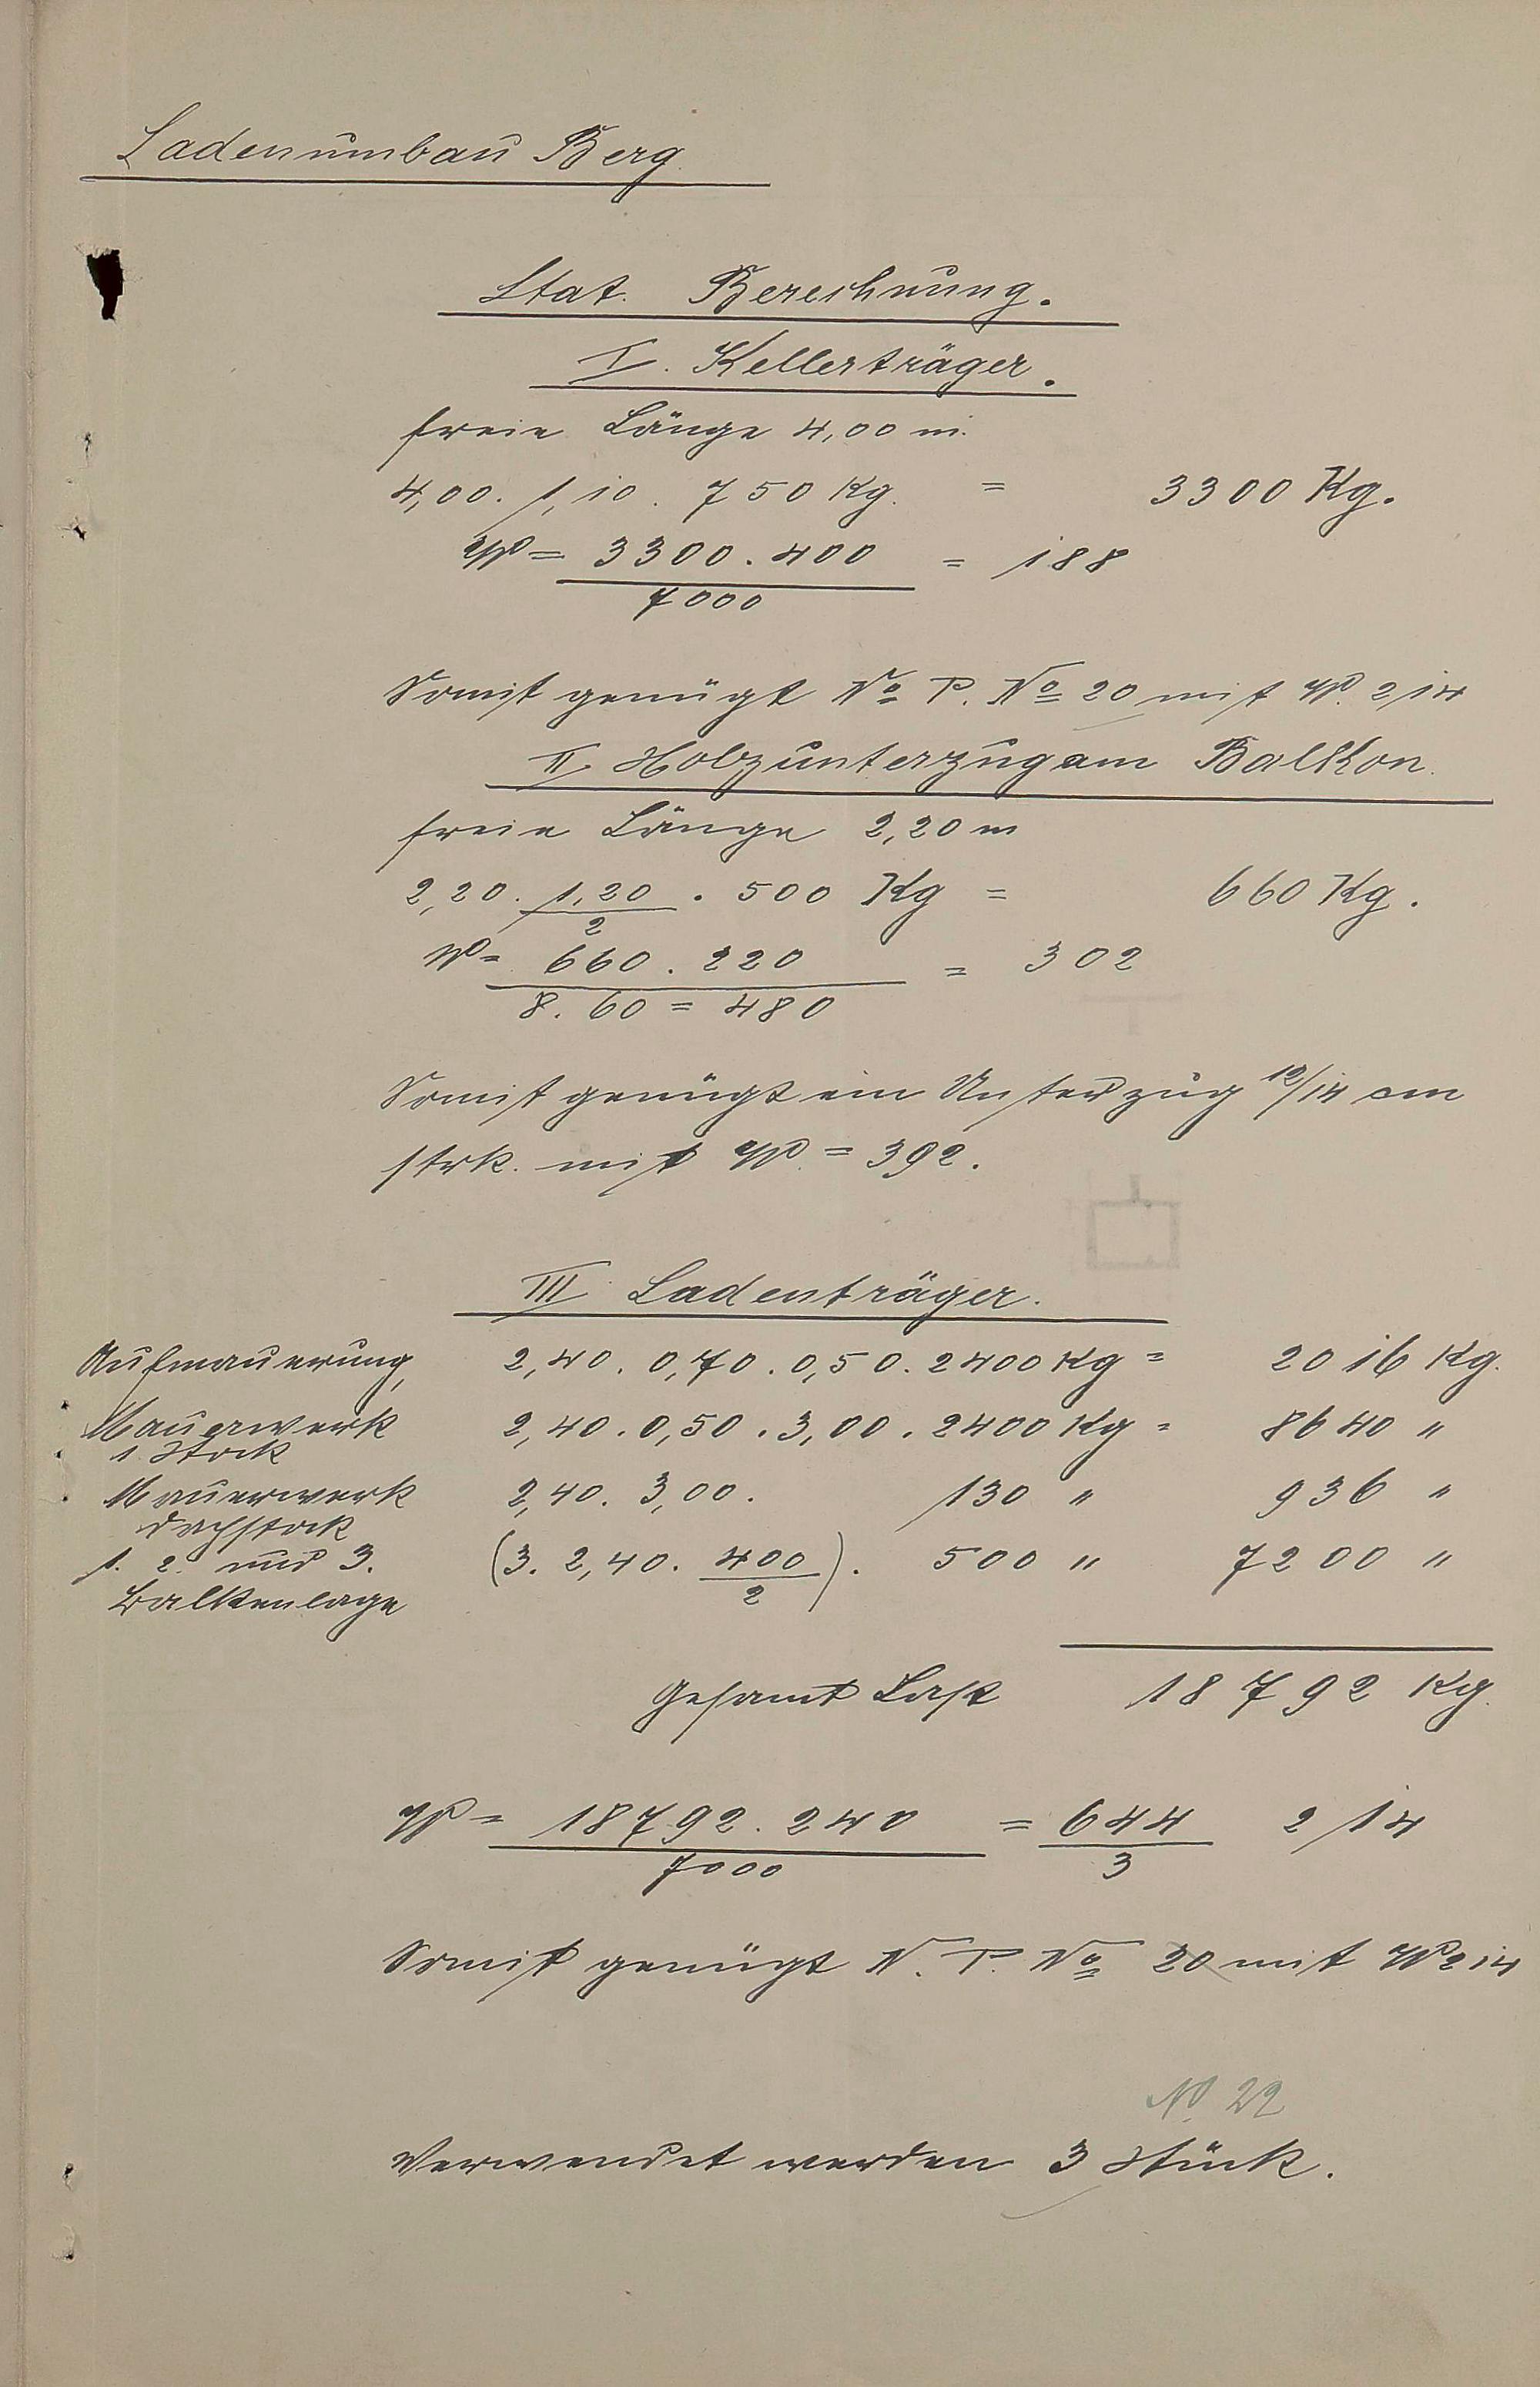 Ladenumbau Berg.
Stat. Berechnung.
I. Kellerträger.
freie Länge 4,00 m.
4,00 . 1,10 . 750 Kg. = 3300 Kg.
W = 3300 . 400 = 188
7000
Somit genügt No P. No 20 mit W. 214
II. Holzunterzug am Balkon.
freie Länge 2,20 m
2,20 . 1,20 . 500 Kg = 660 Kg.
2
W = 660 . 220 = 302
8 . 60 = 480
Somit genügt ein Unterzug 12/14 cm
strk. mit W. = 392.
III Ladenträger.
Aufmauerung, 2,40 . 0,70 . 0,50 . 2400 Kg = 2016 Kg.
Mauerwerk 2,40 . 0,50 . 3,00 . 2400 Kg = 8640 "
1. Stock
Mauerwerk 2,40 . 3,00 . 130 " 936 "
Dachstock
1. 2. und 3. (3 . 2,40 . 400) . 500 " 7200 "
2
Balkenlage
Gesamt Last 18792 Kg.
W = 18792 . 240 = 644 214
7000 3
Somit genügt N. P. No 20 mit W 214
No 22
Verwendet werden 3 Stück.